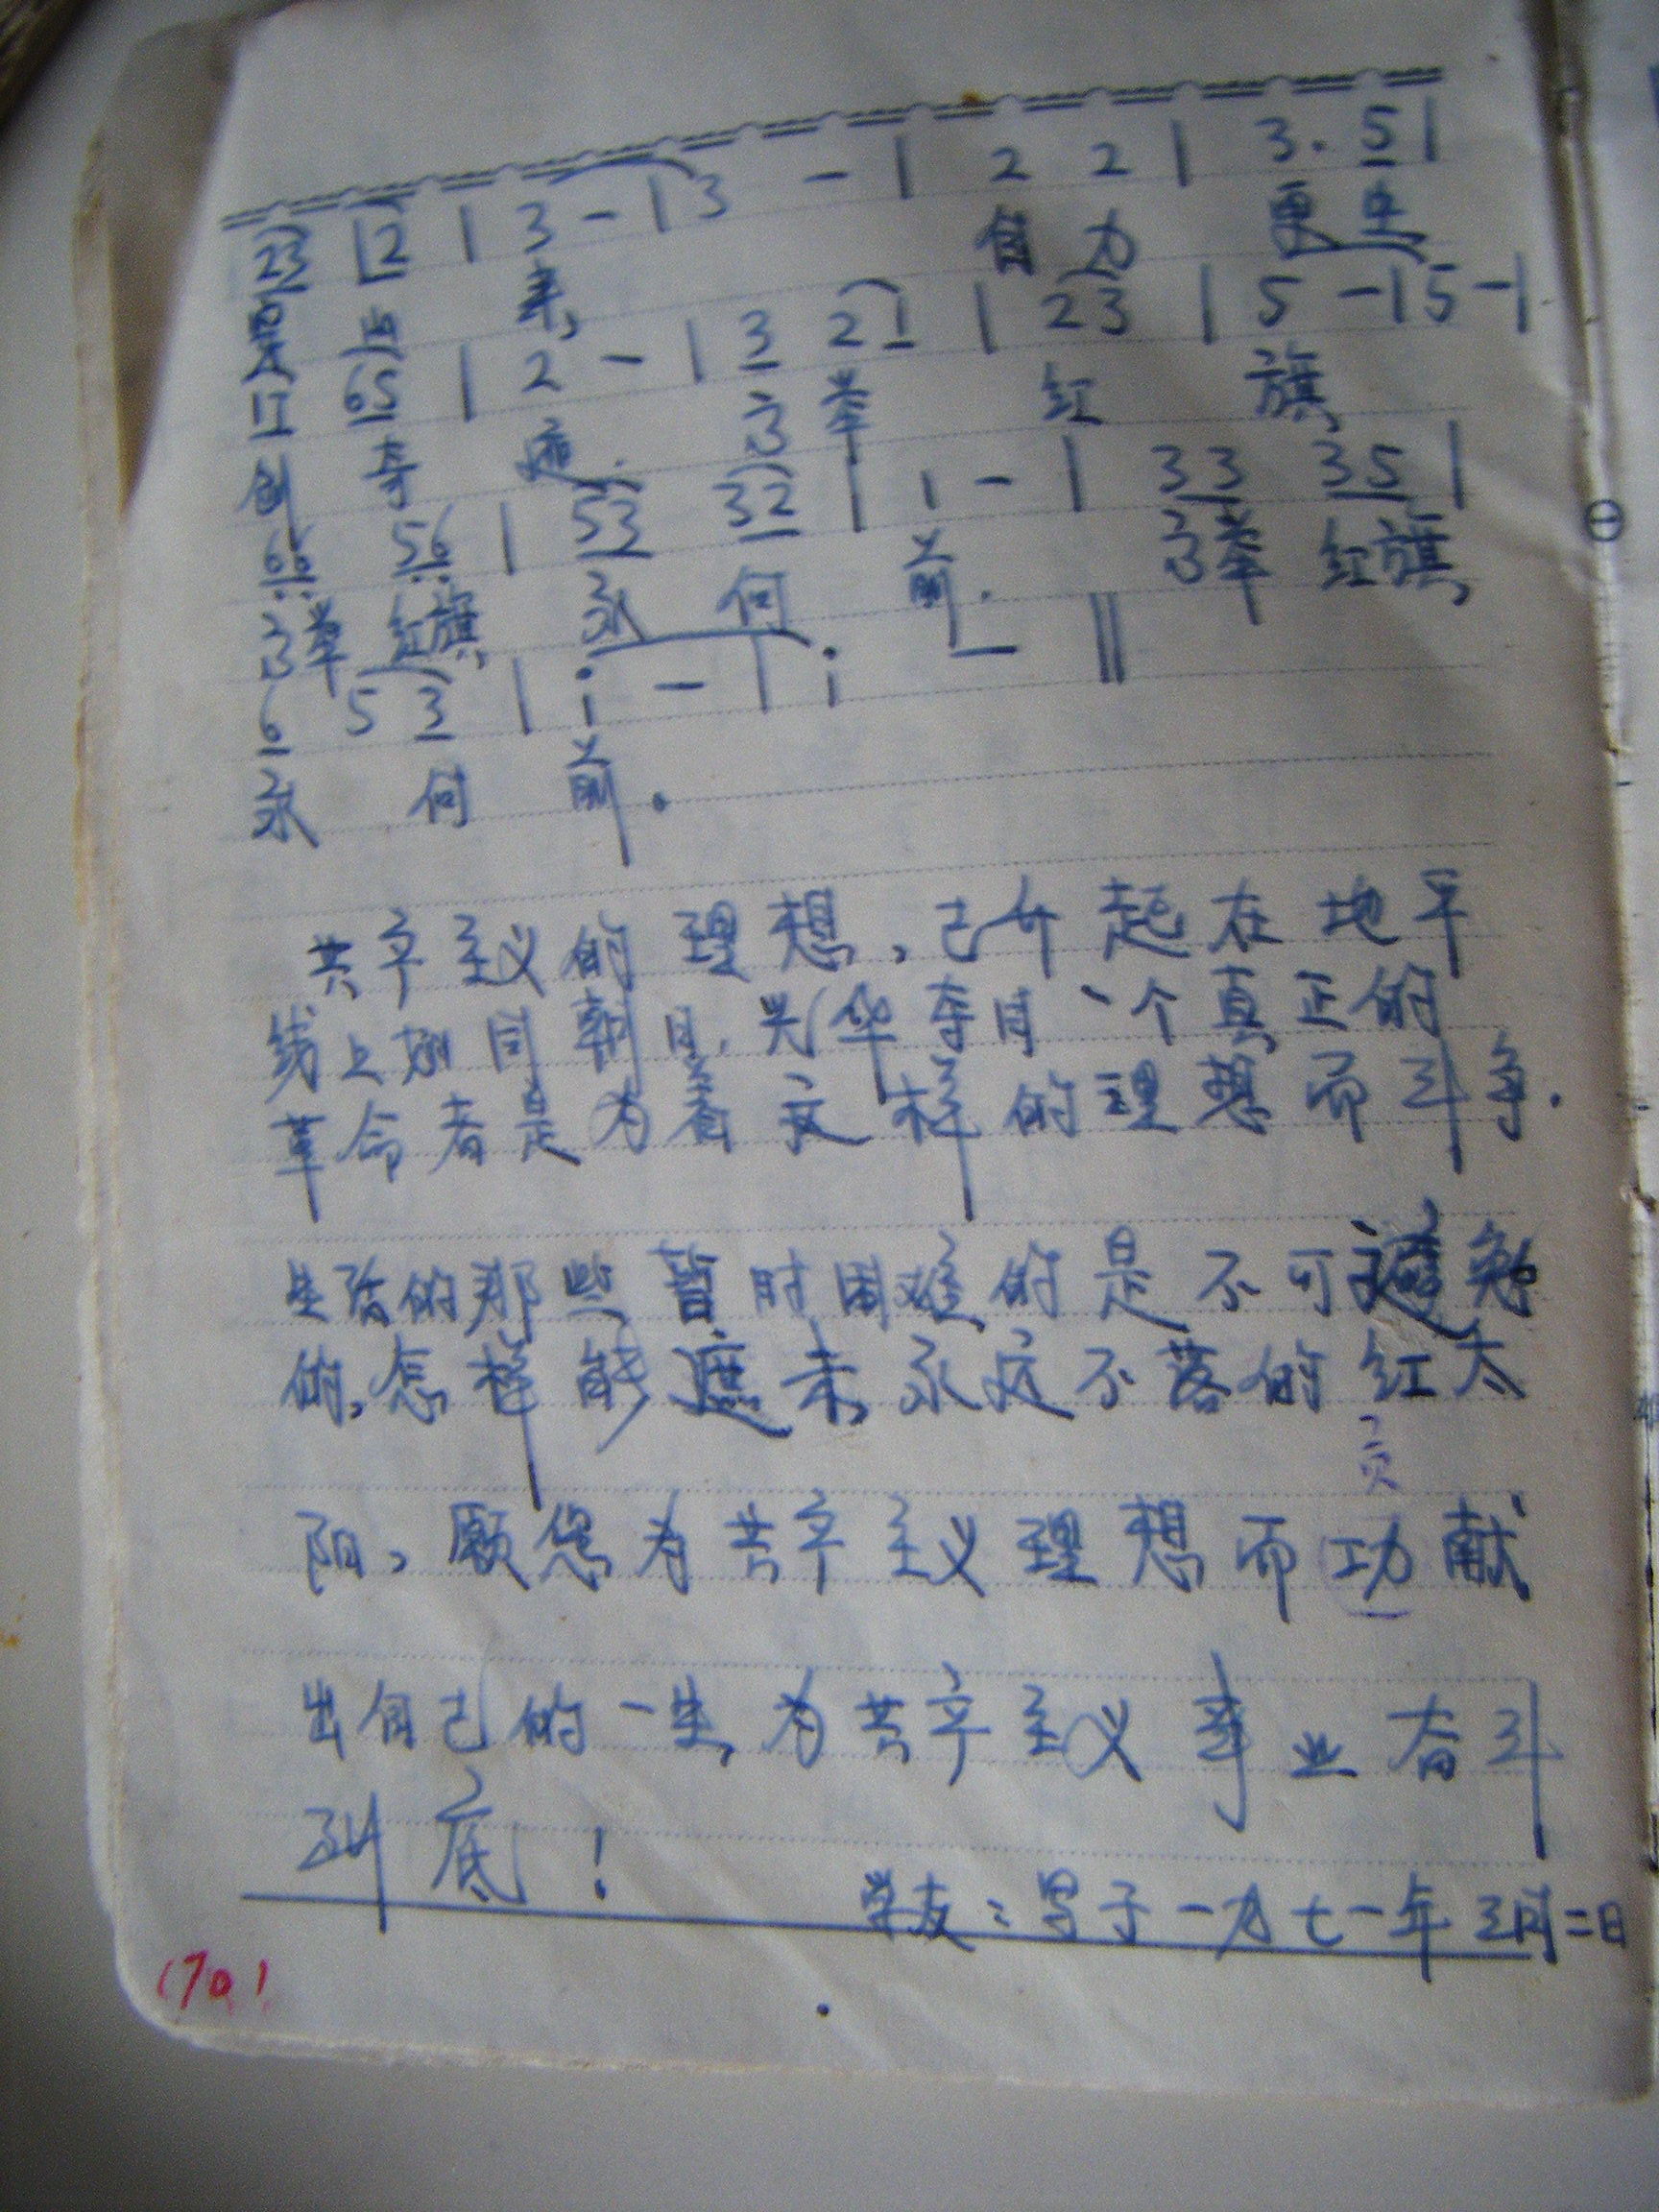 23 12 | 3 - | 3 - | 2 2 | 3. 5 |
来, 自力 更生
12 65 | 2 - | 3 21 | 23 | 5 - | 5 - |
创 奇 迹. 高 举 红 旗,
66 56 | 53 32 | 1 - | 33 35 |
高举 红旗, 永 向 前. 高举 红旗,
6 5 3 | i - | i - ‖
永 向 前。
共产主义的理想,已升起在地平
线上如同朝日,光华夺目、个真正的
革命者是为着这样的理想而斗争.
生活的那些暂时困难的是不可避免
的,怎样能遮来,永远不落的红太
贡
阳,愿您为共产主义理想而功献
出自己的一生,为共产主义事业奋斗
到底!
学友:写于一九七一年三月二日
(70)